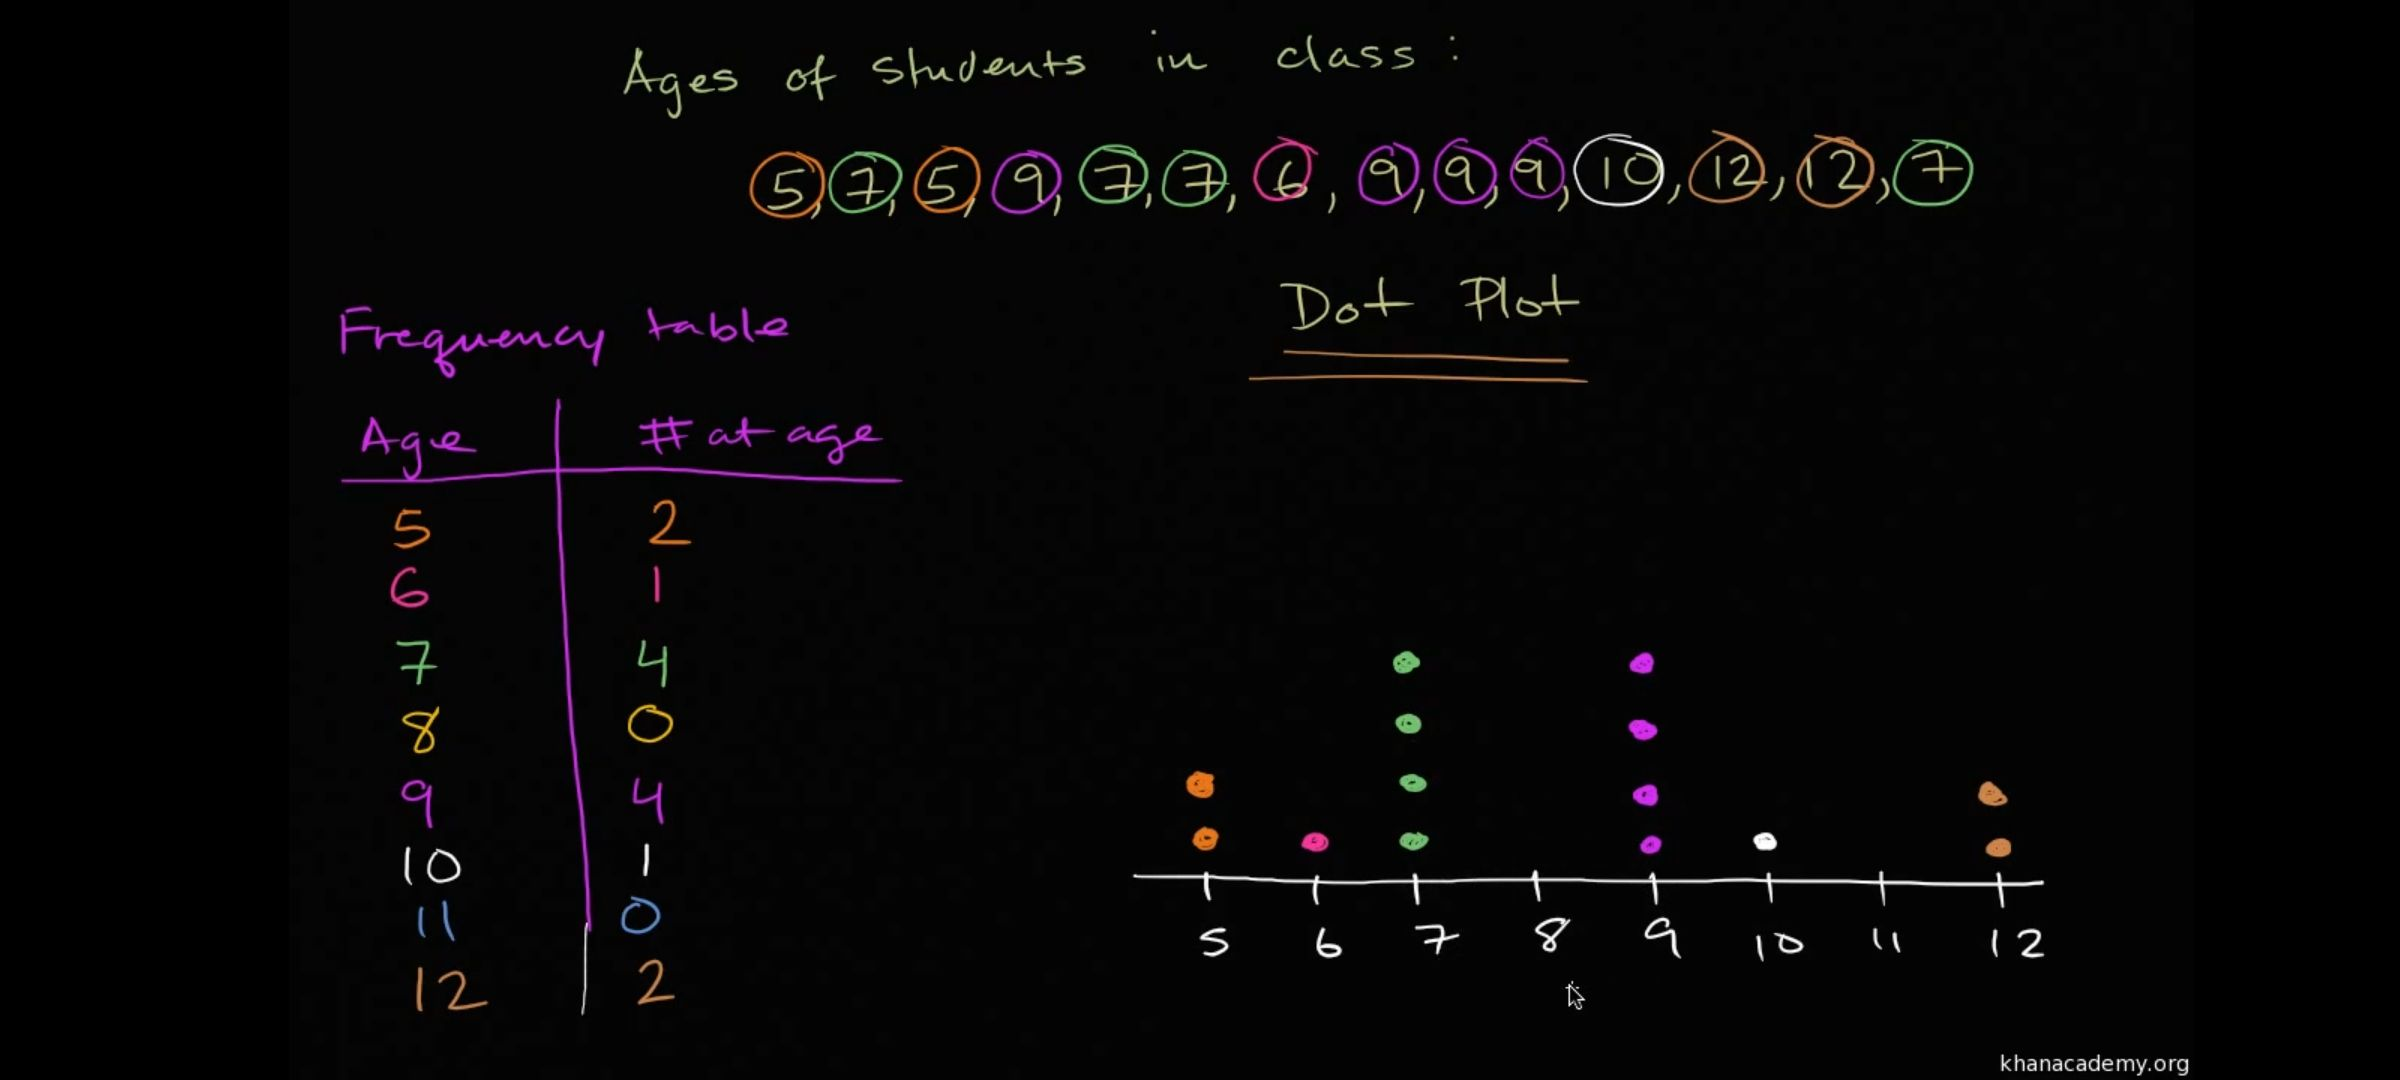 Ages of students in class:
5, 7, 5, 9, 7, 7, 6, 9, 9, 9, 10, 12, 12, 7
Dot Plot
Frequency table
Age # at age
5 2
6 1
7 4
8 0
9 4
10 1
11 0
12 2
5 6 7 8 9 10 11 12
khanacademy.org